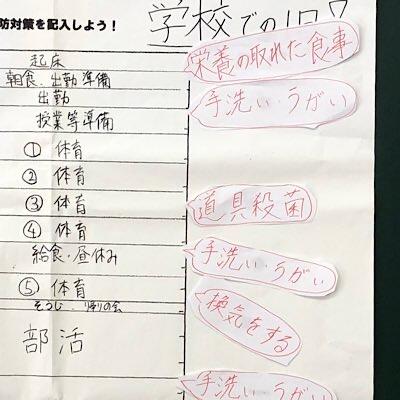 防対策を記入しよう！
学校での1日
起床
朝食、出勤準備
出勤
授業等準備
① 体育
② 体育
③ 体育
④ 体育
給食・昼休み
⑤ 体育
そうじ・帰りの会
部活
栄養の取れた食事
手洗い・うがい
道具殺菌
手洗い・うがい
換気をする
手洗い・うがい